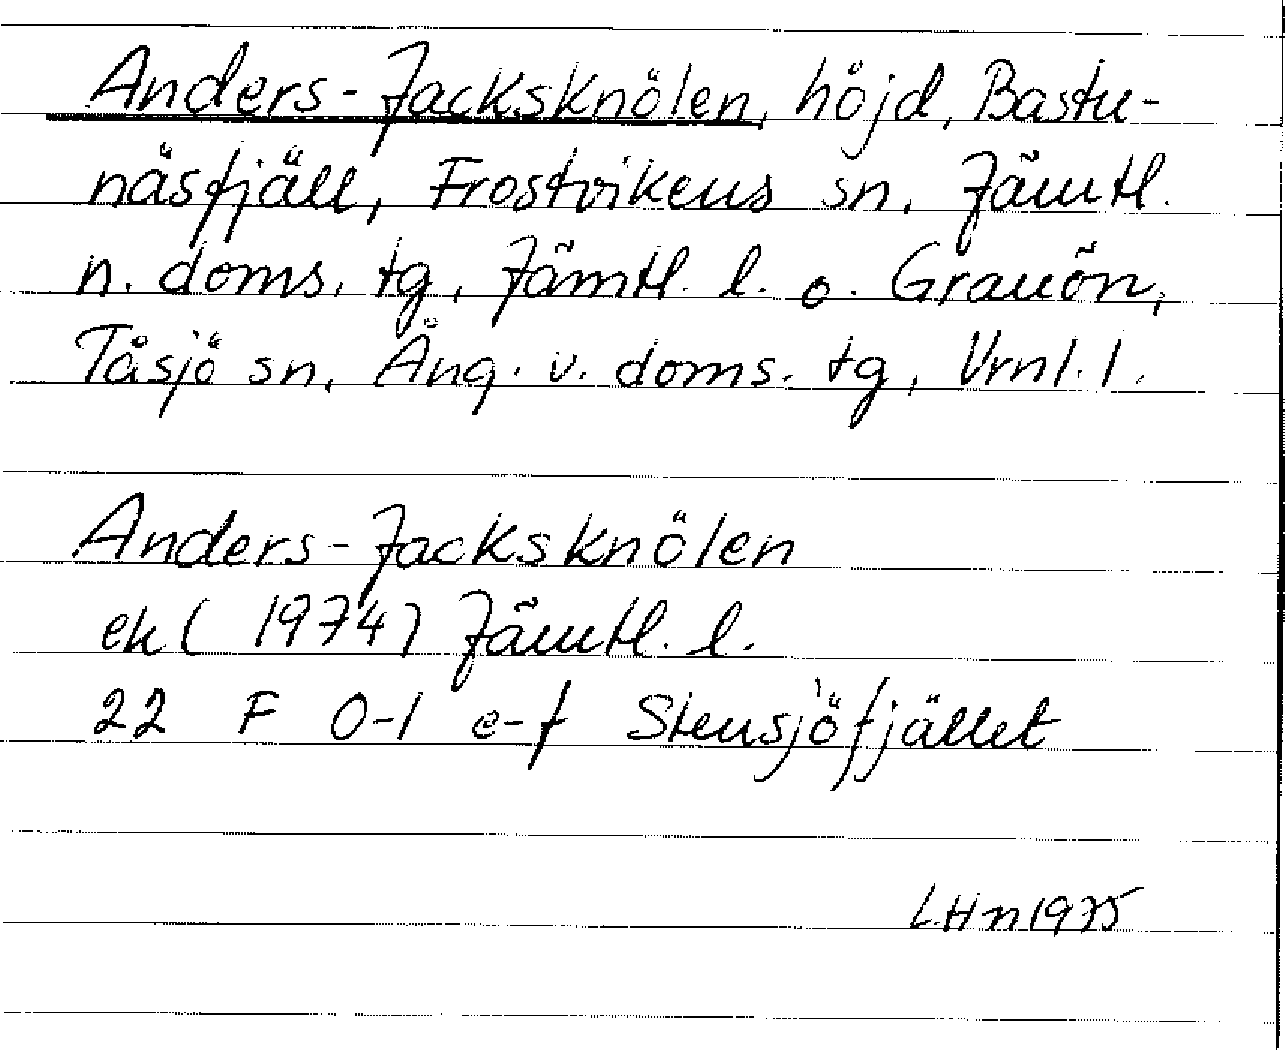 Anders-Jacksknölen, höjd, Bastu-
näsfjäll, Frostvikens sn, Jämtl.
n. doms. tg, Jämtl. l. o. Granön,
Tåsjö sn, Ång. v. doms. tg, Vrnl. l.
Anders-Jacksknölen
ek (1974) Jämtl. l.
22 F 0-1 e-f Stensjöfjället
LHn 1975